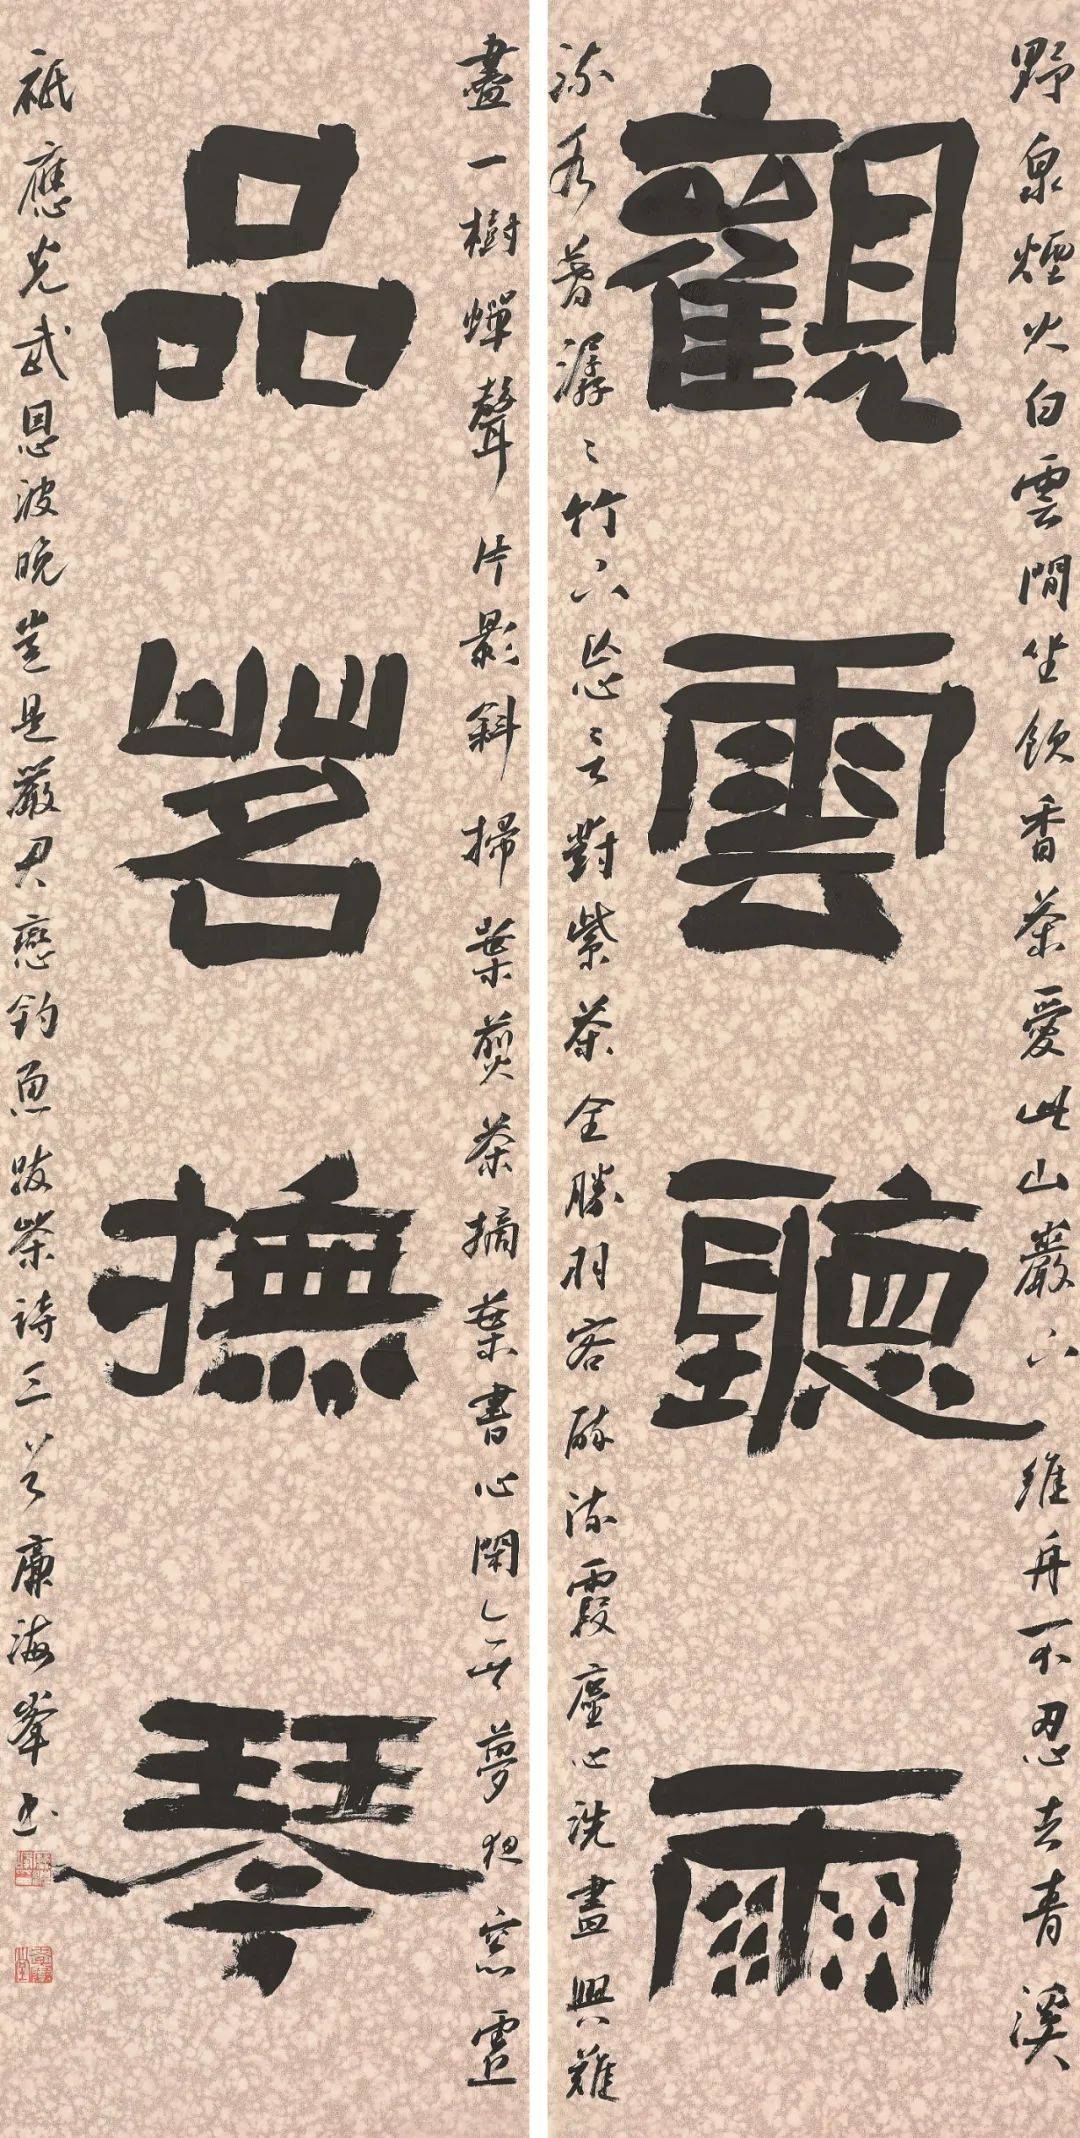 野泉煙火白雲間坐飲香茶愛此山巖下維舟不忍去青溪
觀雲聽雨
流水暮潺〻竹下忘言對紫茶全勝羽客醉流霞塵心洗盡興難
盡一樹蟬聲片影斜掃葉煎茶摘葉書心閑無夢夜窓虛
品茗撫琴
祗應光武恩波晚豈是嚴君戀釣魚詩三首廉海峯書